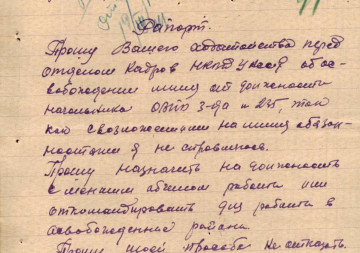 Рапорт.
Прошу Вашего ходатайства перед
отделом кадров НКВД УССР об ос-
вобождении меня от должности
начальника ОВПО 3-да № 235, так
как с возложенными на меня обязан-
ностями я не справляюсь.
Прошу назначить на должность
с меньшим объемом работы или
откомандировать для работы в
освобожденные района.
Прошу моей просьбе не отказать.